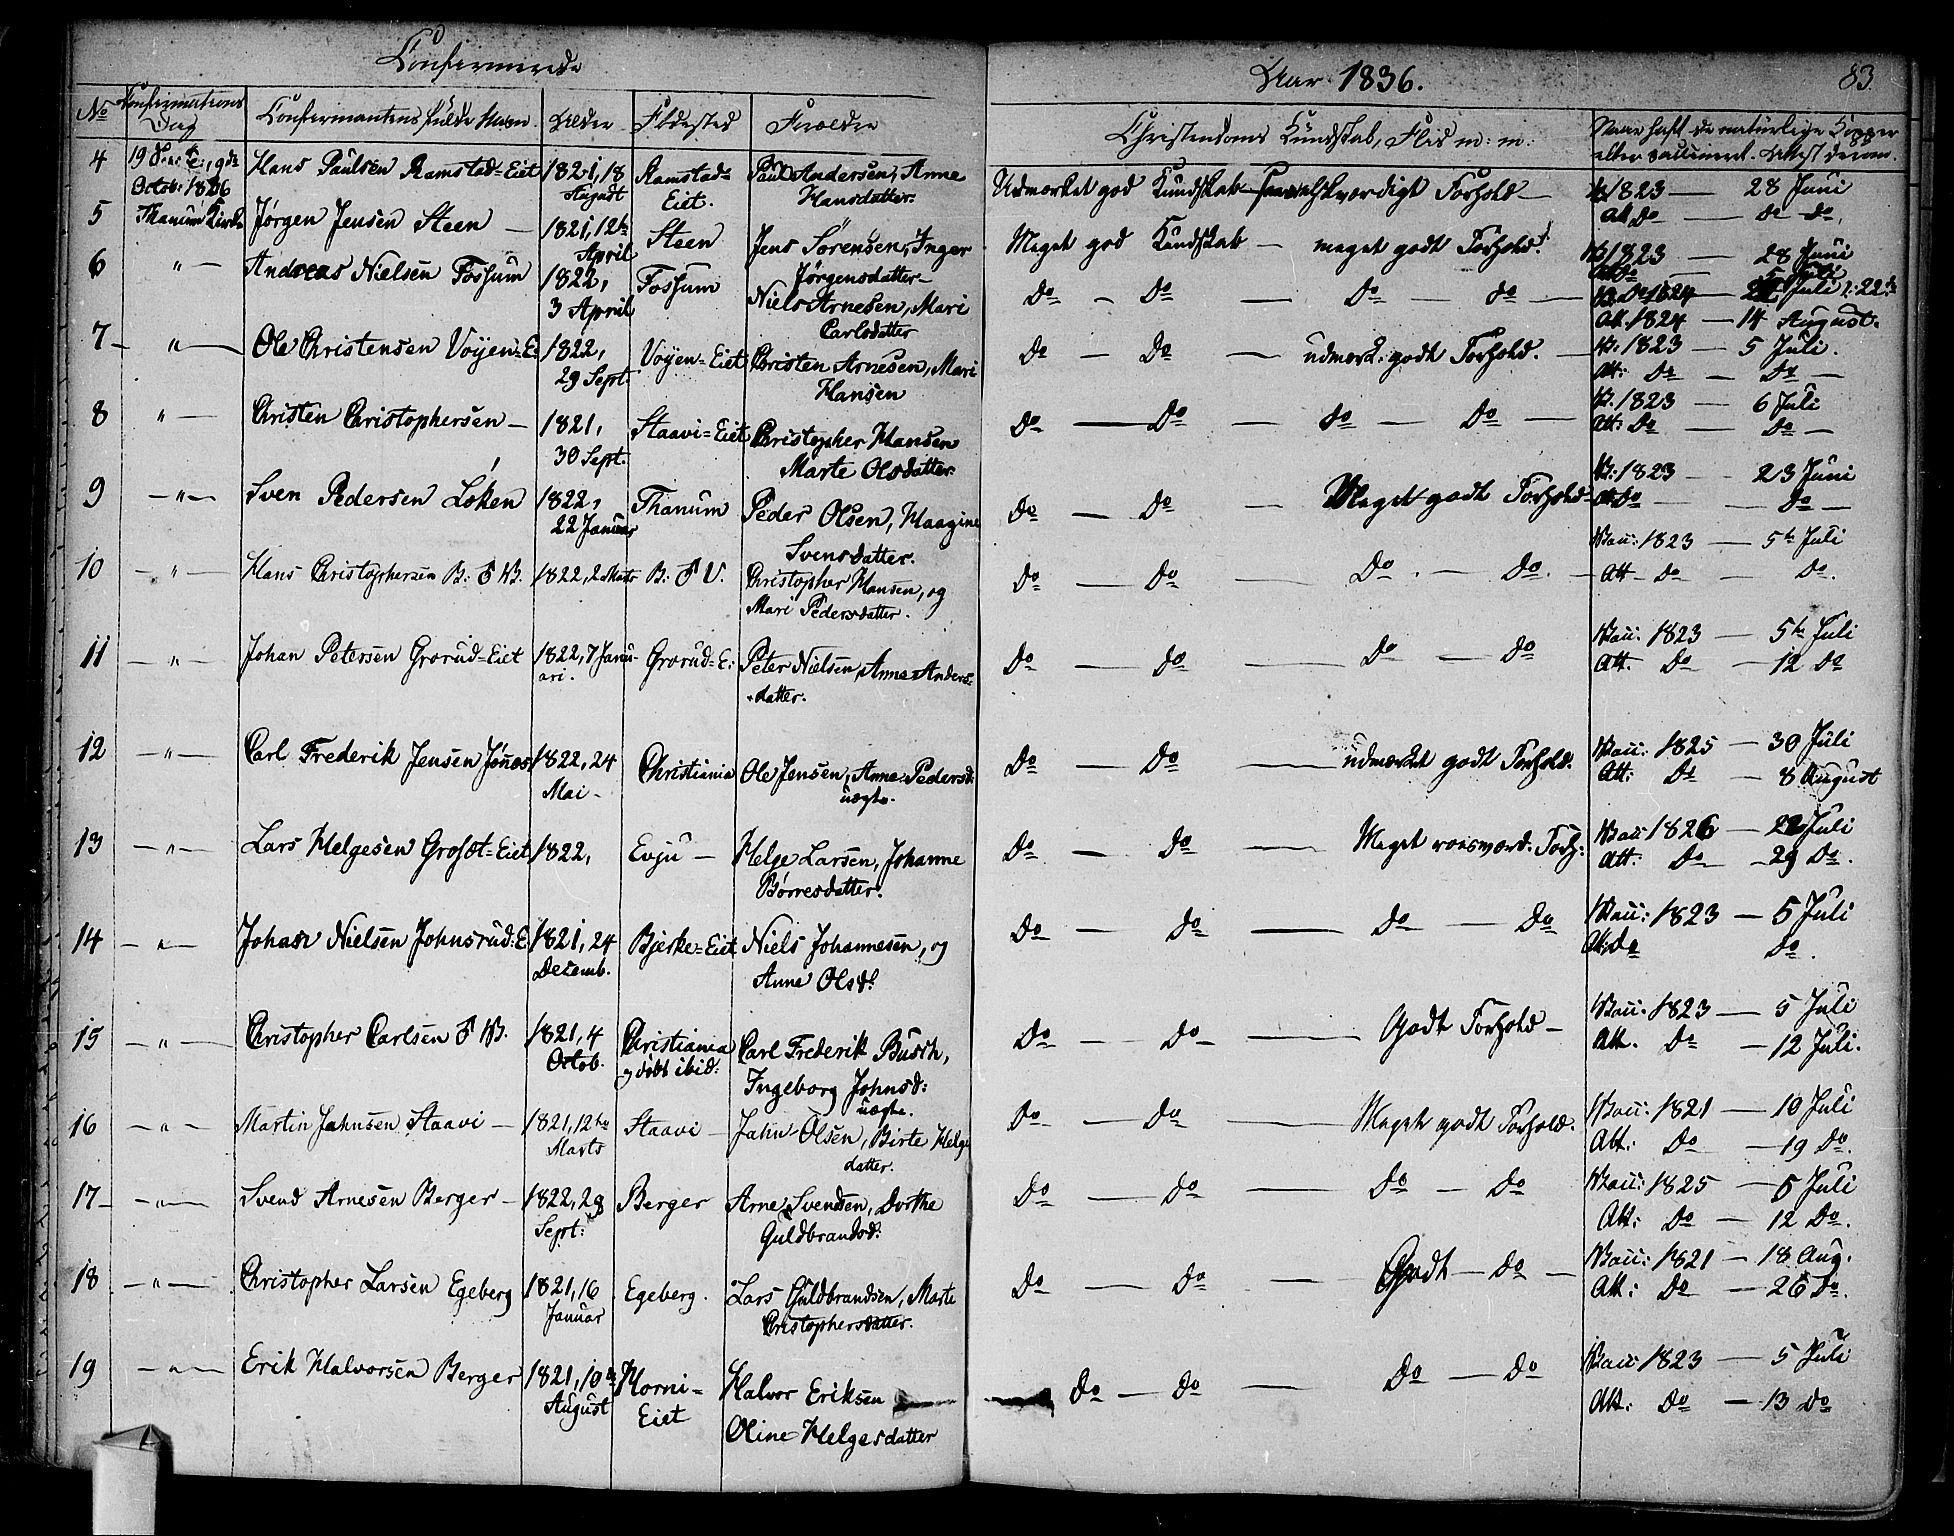 Confirmerede
Aar 1836.
83.
No
Confirmations Dag
Confirmantens fulde Navn
Alder
Fødested
Forældre
Christendoms Kundskab, Flid m: m:
Naar haft de naturlige Kopper
eller vaccineret. Attest derom.
4 Hans Paulsen Ramstad=Eiet 1821, 18 August Ramstad=Eiet. Paul Andersen, Anne Hansdatter.
Octob: 1836
Thanum Kirke
Udmærket god Kundskab værdigt Forhold —
1823 — 28 Juni
Att. Do — do do.
5 Jørgen Jensen Steen — 1821, 12te April Steen Jens Sørensen, Inger Jørgensdatter —
Meget god Kundskab — meget godt Forhold.
1823 — 28 Juni
6 — " — Andreas Nielsen Fossum 1822, 3 April Fossum Niels Arnesen, Mari Carlsdatter
Do — Do — Do — do —
Att. 1824 — 14 August.
7 — " — Ole Christensen Voyen=E: 1822, 29 Sept. Voyen=Eiet Christen Arnesen, Mari Hansen
Do — Do — udmærk: godt Forhold. —
V: 1823 — 5 Juli.
Att: Do — Do —
8 — " — Christen Christophersen — 1821, 30 Sept. Staavi=Eiet Christopher Hansen Marte Olsdatter.
Do — Do — do — Do —
V. 1823 — 6 Juli
Att: Do — Do —
9 — " — Sven Pedersen Løken 1822, 22 Januar Thanum Peder Olsen, Maagine Svensdatter.
Do — Do — Meget godt Forhold —
V: 1823 — 23 Juni
Att. Do — Do —
10 — " — Hans Christophersen B: & V. 1822, 2 Marts B: & V. Christopher Hansen, og Mari Pedersdatter.
Do — Do — Do — Do. —
Vacc: 1823 — 5te Juli
Att — Do — Do.
11 — " — Johan Petersen Grorud=Eiet 1822, 7 Januari. Grorud=E: Peter Nielsen, Anne Andersdatter.
Do — Do — Do — Do
Vacc: 1823 — 5te Juli
Att. Do — 12 Do
12 — " — Carl Frederik Jensen 1822, 24 Mai — Christiania Ole Jensen, Anne Pedersd. uægte.
Do — Do — udmærket godt Forhold.
Vacc: 1825 — 30 Juli
Att: Do — 8 August
13 — " — Lars Helgesen Eiet 1822, Evju — Helge Larsen, Johanne Børresdatter.
Do — Do — Meget roesværd. Forh:
Vacc: 1826 — Juli
Att: Do — 29 Do.
14 — " — Johan Nielsen Johnsrud=E 1821, 24 Decemb. Bjerke=Eiet Niels Johannesen, og Anne Olsd.
Do — Do — Do — Do
Vacc: 1823 — 5 Juli
Att: do Do.
15 — " — Christopher Carlsen & V. 1821, 4 Octob. Christiania døbt ibid: Carl Frederik Busch, Ingeborg Johnsd: uægte.
Do — Do — Godt Forhold —
Vacc. 1823 — 5 Juli
Att. Do — 12 Juli.
16 — " — Martin Jahnsen Staavi — 1821, 12te Marts Staavi — Jahn Olsen, Birte Helgedatter.
Do — Do — Meget godt Forhold.
Vacc: 1821 — 10 Juli
Att: Do — 19 Do.
17 — " — Svend Arnesen Berger — 1822, 28 Sept: Berger Arne Svendsen, Dorthe Guldbrandsd.
Do — Do — Do — Do
Vacc: 1825 — 5 Juli
Att: Do — 12 Do.
18 — " — Christopher Larsen Egeberg 1821, 16 Januar Egeberg. Lars Guldbrandsen, Marte Christophersdatter.
Do — Do — Godt — Do —
Vacc: 1821 — 18 Aug.
Att: Do — 26 Do.
19 — " — Erik Halvorsen Berger 1821, 10de August Horni=Eiet Halvor Eriksen Oline Helgesdatter
Do — Do — Do — Do
Vacc: 1823 — 5 Juli
Att: Do — 13 Do